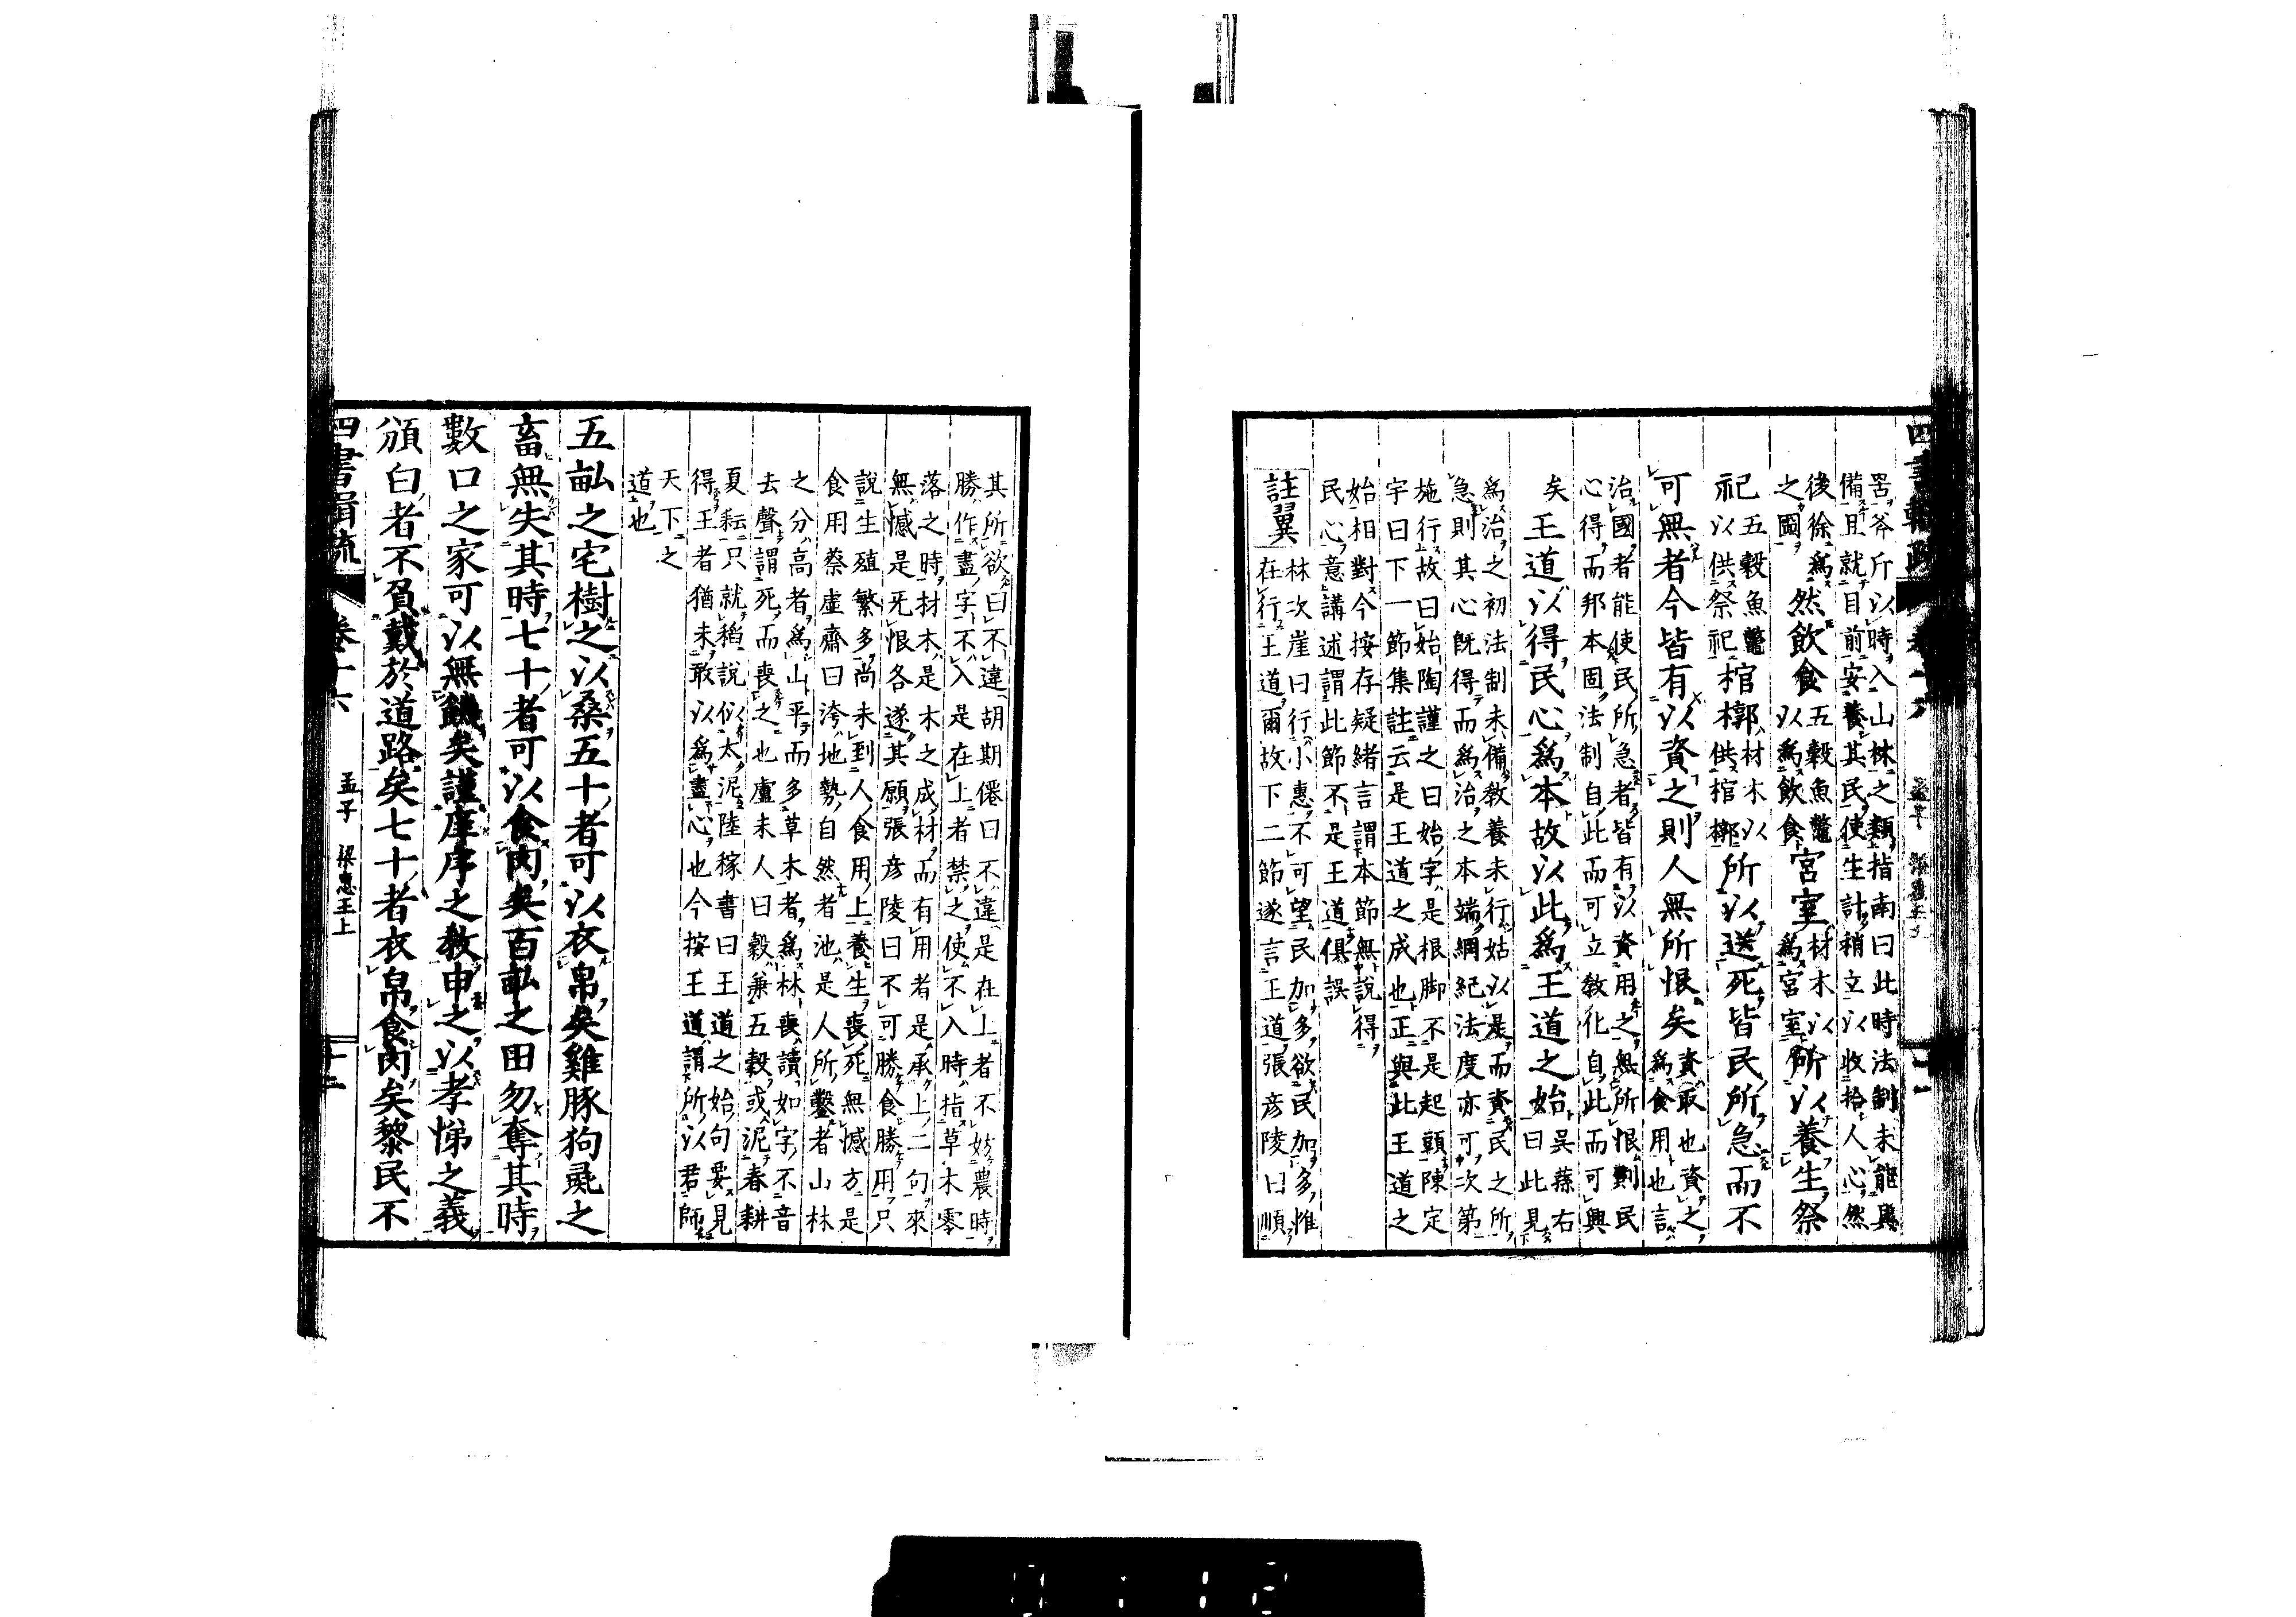 四書輯疏 卷十六 孟子 梁惠王上
罟斧斤以時入山林之類指南曰此時法制未能興
備且就目前安養其民使生計稍立以收拾人心然
後徐爲然飲食五穀魚鼈宮室材木以所以養生祭
之圖以爲飲食爲宮室
祀五穀魚鼈棺槨材木以所以送死皆民所急而不
以供祭祀供棺槨
可無者今皆有以資之則人無所恨矣資取也資之
爲食用也言
治國者能使民所急者皆有以資用之無所恨則民
心得而邦本固法制自此而可立敎化自此而可興
矣王道以得民心爲本故以此爲王道之始吳蓀右
曰此見
爲治之初法制未備敎養未行姑以是而資民之所
急則其心既得而爲治之本端綱紀法度亦可次第
施行故曰始陶謹之曰始字是根脚不是起頭陳定
宇曰下一節集註云是王道之成也正與此王道之
始相對今按存疑緒言謂本節無說得
民心意講述謂此節不是王道俱誤
註翼 林次崖曰行小惠不可望民加多欲民加多惟
在行王道爾故下二節遂言王道張彦陵曰順
其所欲曰不違胡期僊曰不違是在上者不妨農時
勝作盡字不入是在上者禁之使不入時指草木零
落之時材木是木之成材而有用者是承上二句來
無憾是死恨各遂其願張彦陵曰不可勝食勝用只
說生殖繁多尚未到人食用上養生喪死無憾方是
食用蔡虛齋曰洿地勢自然者池是人所鑿者山林
之分高者爲山平而多草木者爲林喪讀如字不音
去聲謂死而喪之也盧未人曰穀兼五穀或泥春耕
夏耘只就稻說似太泥陸稼書曰王道之始句要見
得王者猶未敢以爲盡心也今按王道謂所以君師
天下之
道也
五畝之宅樹之以桑五十者可以衣帛矣雞豚狗彘之
畜無失其時七十者可以食肉矣百畝之田勿奪其時
數口之家可以無饑矣謹庠序之敎申之以孝悌之義
頒白者不負戴於道路矣七十者衣帛食肉矣黎民不
四書輯疏 卷十六 孟子 梁惠王上 十二